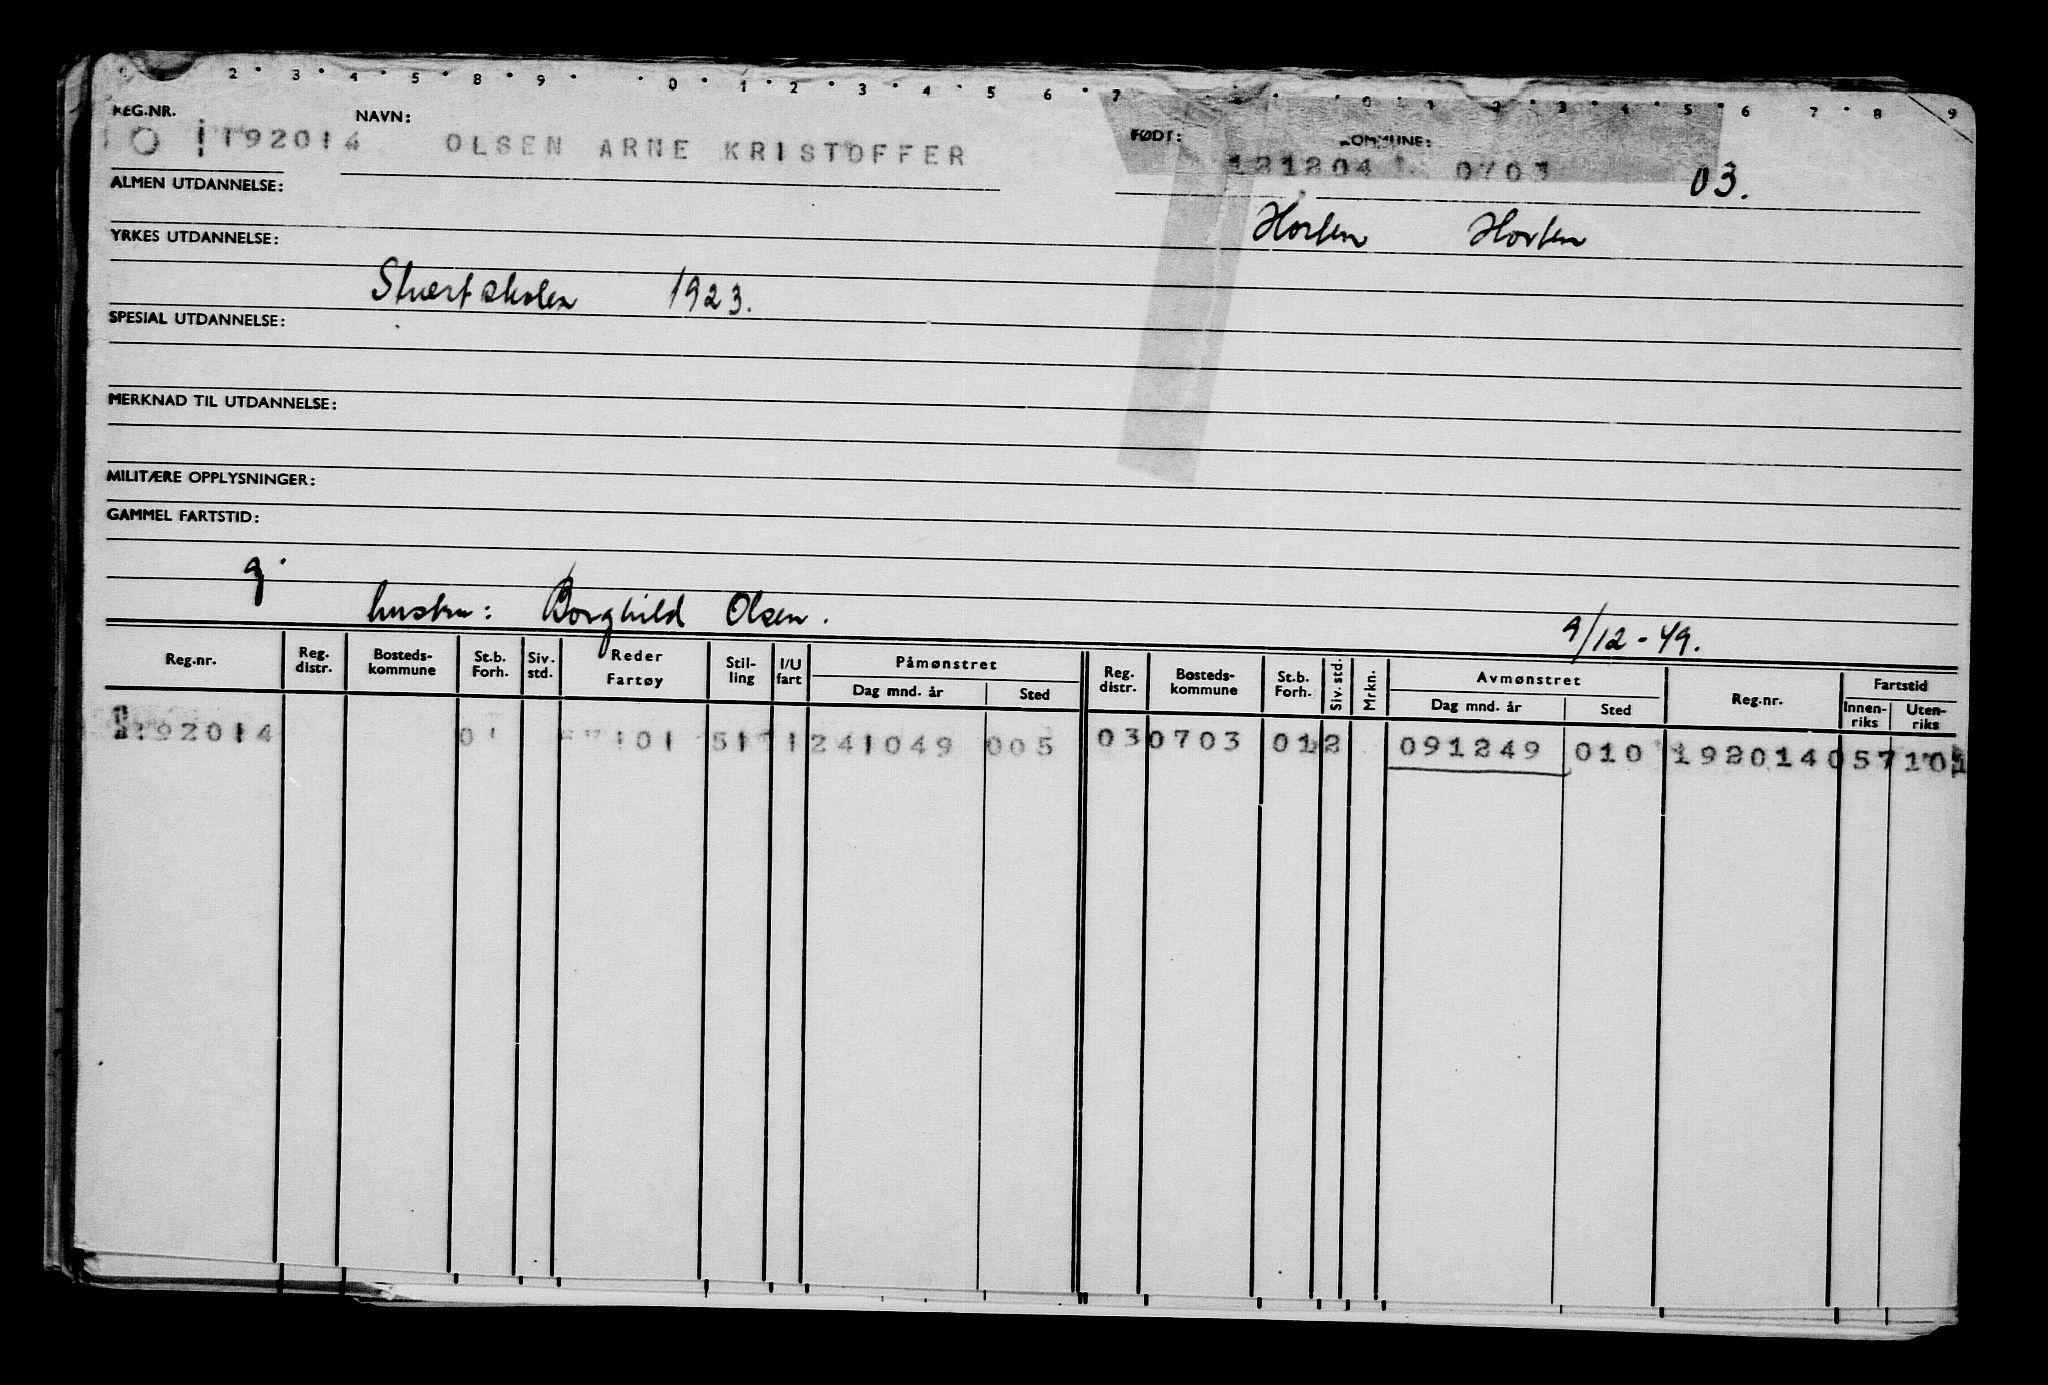 2 3 4 5 8 9 0 1 2 3 4 5 6 7 0 1 2 3 4 5 6 7 8 9
REG.NR. NAVN: FØDT: KOMMUNE:
192014 OLSEN ARNE KRISTOFFER 121204 0703 03.
ALMEN UTDANNELSE:
Horten Horten
YRKES UTDANNELSE:
Stuertskolen 1923.
SPESIAL UTDANNELSE:
MERKNAD TIL UTDANNELSE:
MILITÆRE OPPLYSNINGER:
GAMMEL FARTSTID:
g.
hustru: Borghild Olsen. 9/12-49.
Reg.nr. Reg. distr. Bosteds-kommune St.b. Forh. Siv. std. Reder Fartøy Stil-ling I/U fart Påmønstret Dag mnd. år Sted Reg. distr. Bosteds-kommune St.b. Forh. Siv. std. Mrkn. Avmønstret Dag mnd. år Sted Reg.nr. Fartstid Innen-riks Uten-riks
192014 1 241049 005 03 0703 01 2 091249 010 192014 057